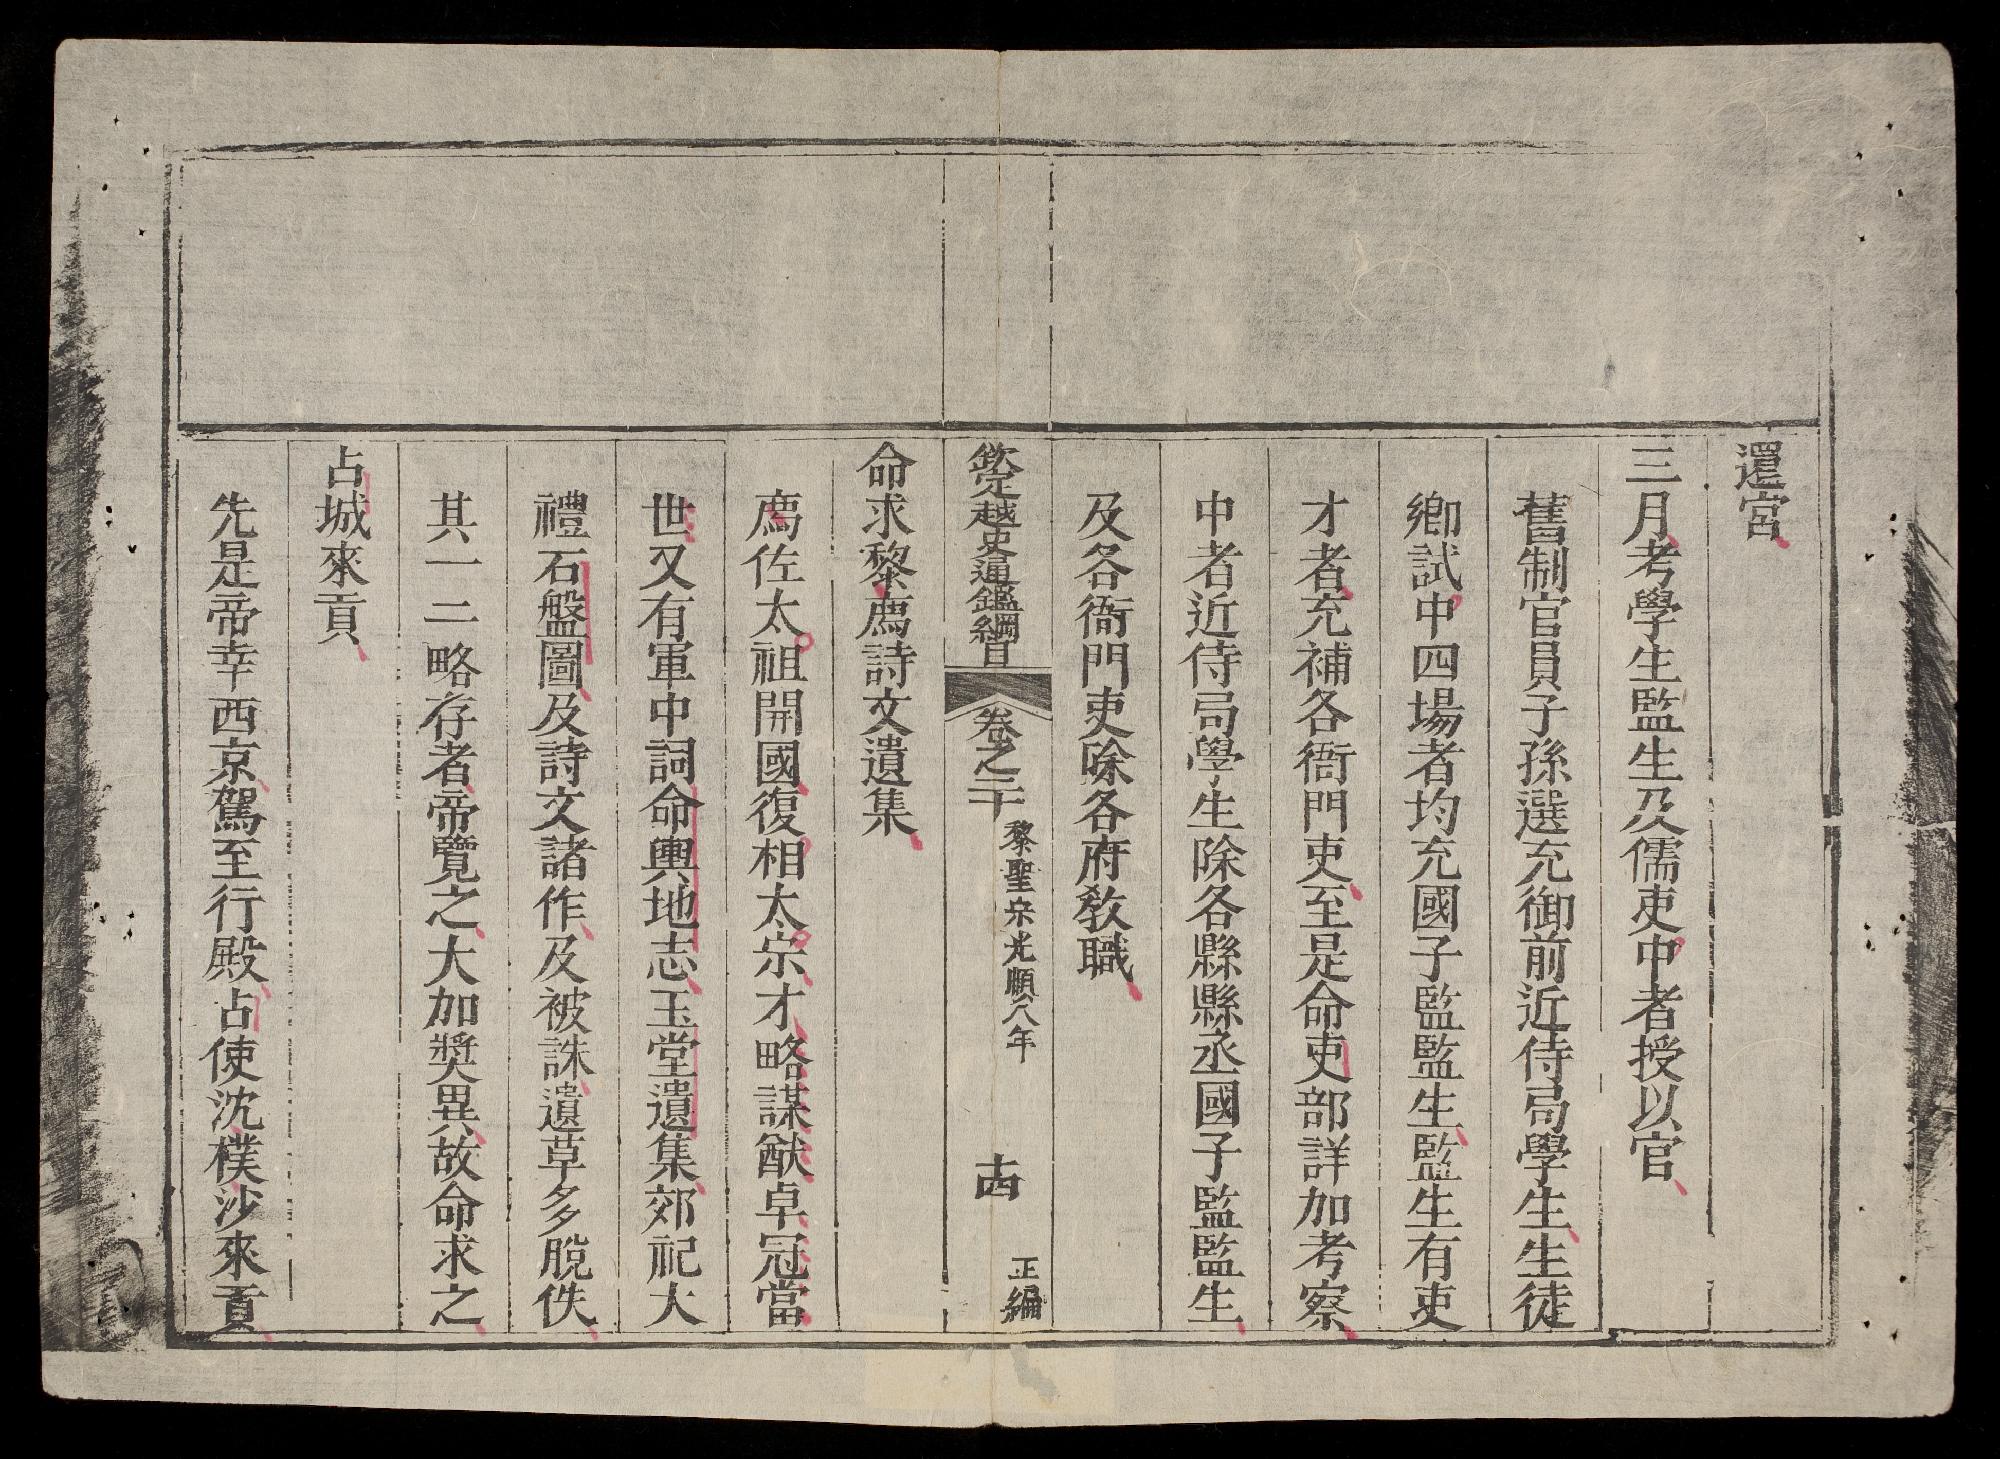 還宮
三月考學生監生及儒吏中者授以官
舊制官員子孫選充御前近侍局學生生徒
鄉試中四場者均充國子監監生監生有吏
才者充補各衙門吏至是命吏部詳加考察
中者近侍局學生除各縣縣丞國子監監生
及各衙門吏除各府教職
欽定越史通鑑綱目
卷之二十
黎聖宗光順八年
十四
正編
命求黎廌詩文遺集
廌佐太祖開國復相太宗才略謀猷卓冠當
世又有軍中詞命輿地志玉堂遺集郊祀大
禮石盤圖及詩文諸作及被誅遺草多脫佚
其一二略存者帝覽之大加奬異故命求之
占城來貢
先是帝幸西京駕至行殿占使沈樸沙來貢